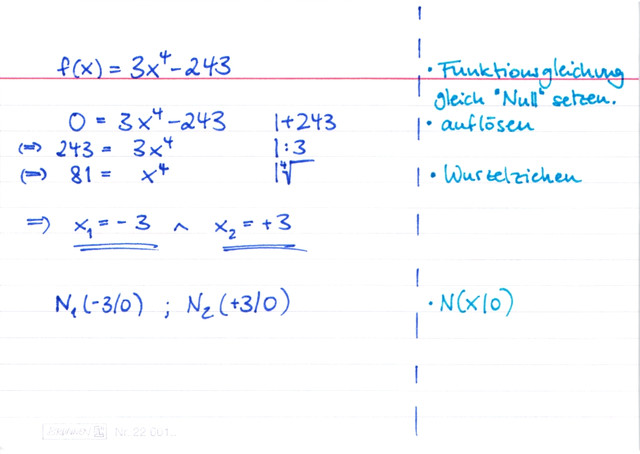 f(x) = 3x⁴ - 243
• Funktionsgleichung
gleich "Null" setzen.
0 = 3x⁴ - 243 |+243
• auflösen
(=>) 243 = 3x⁴ |:3
(=>) 81 = x⁴ |⁴√
• Wurzelziehen
=> x₁ = -3 ∧ x₂ = +3
N₁(-3/0) ; N₂(+3/0)
• N(x|0)